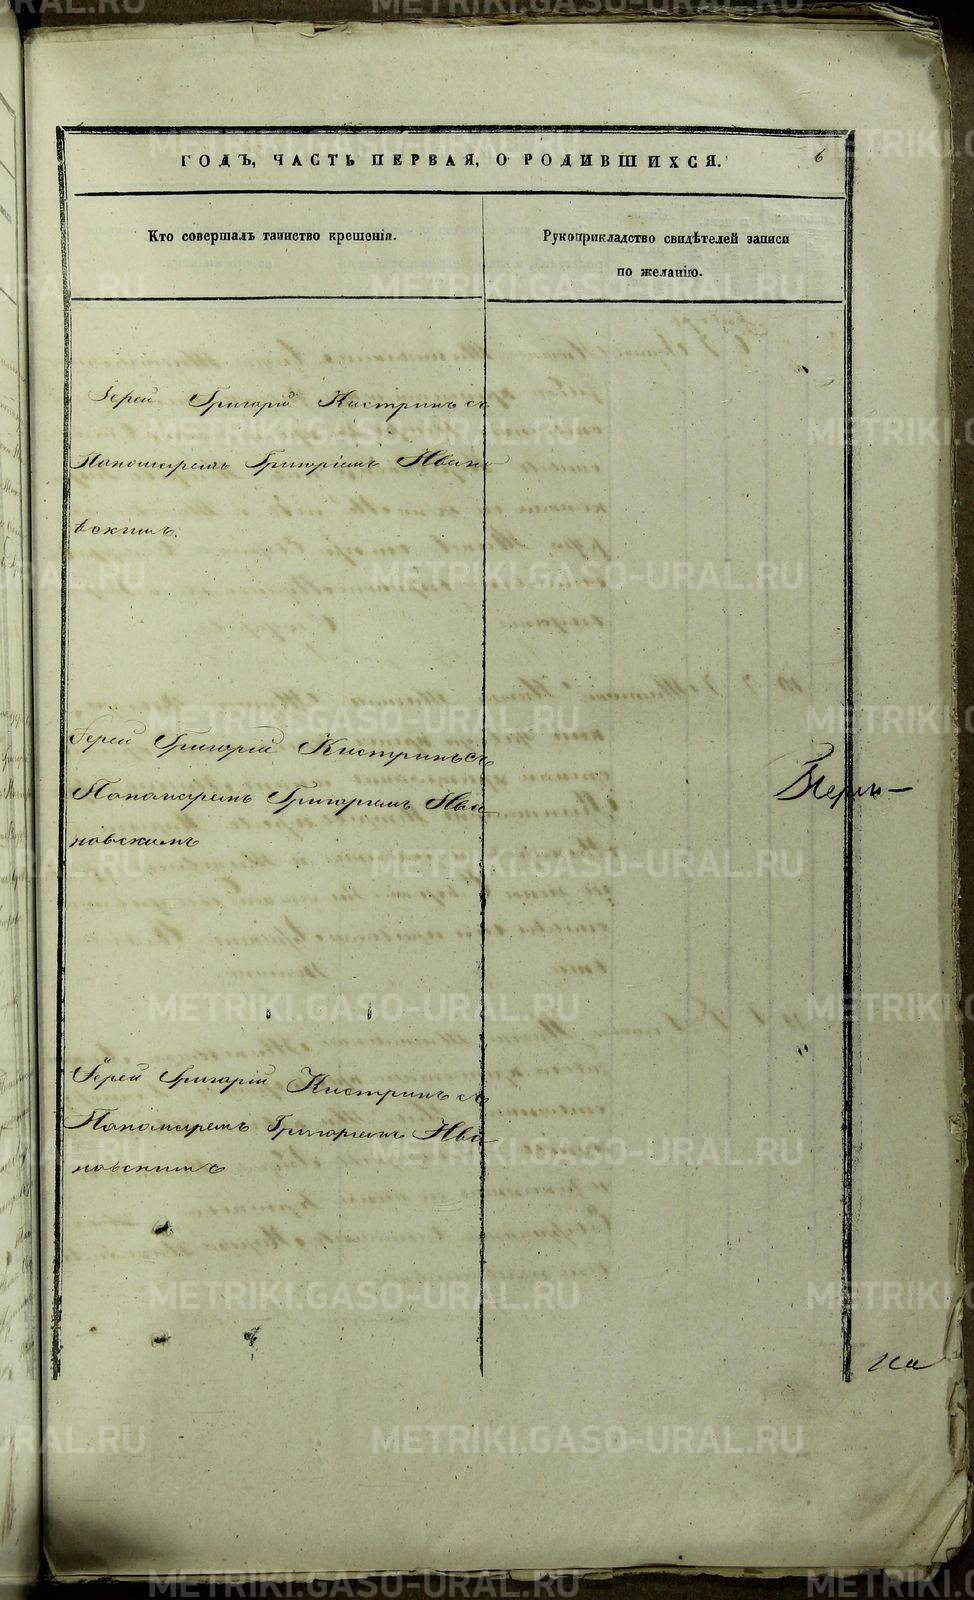 ГОДЪ, ЧАСТЬ ПЕРВАЯ, О РОДИВШИХСЯ.
6
Кто совершалъ таинство крещенія.
Рукоприкладство свидѣтелей записи
по желанію.
Іерей Григорій Кистринъ съ
Пономаремъ Григоріемъ Ивано
вскимъ.
Іерей Григорій Кистринъ съ
Пономаремъ Григоріемъ Ива
новскимъ
Іерей Григорій Кистринъ съ
Пономаремъ Григоріемъ Ива
новскимъ
METRIKI.GASO-URAL.RU